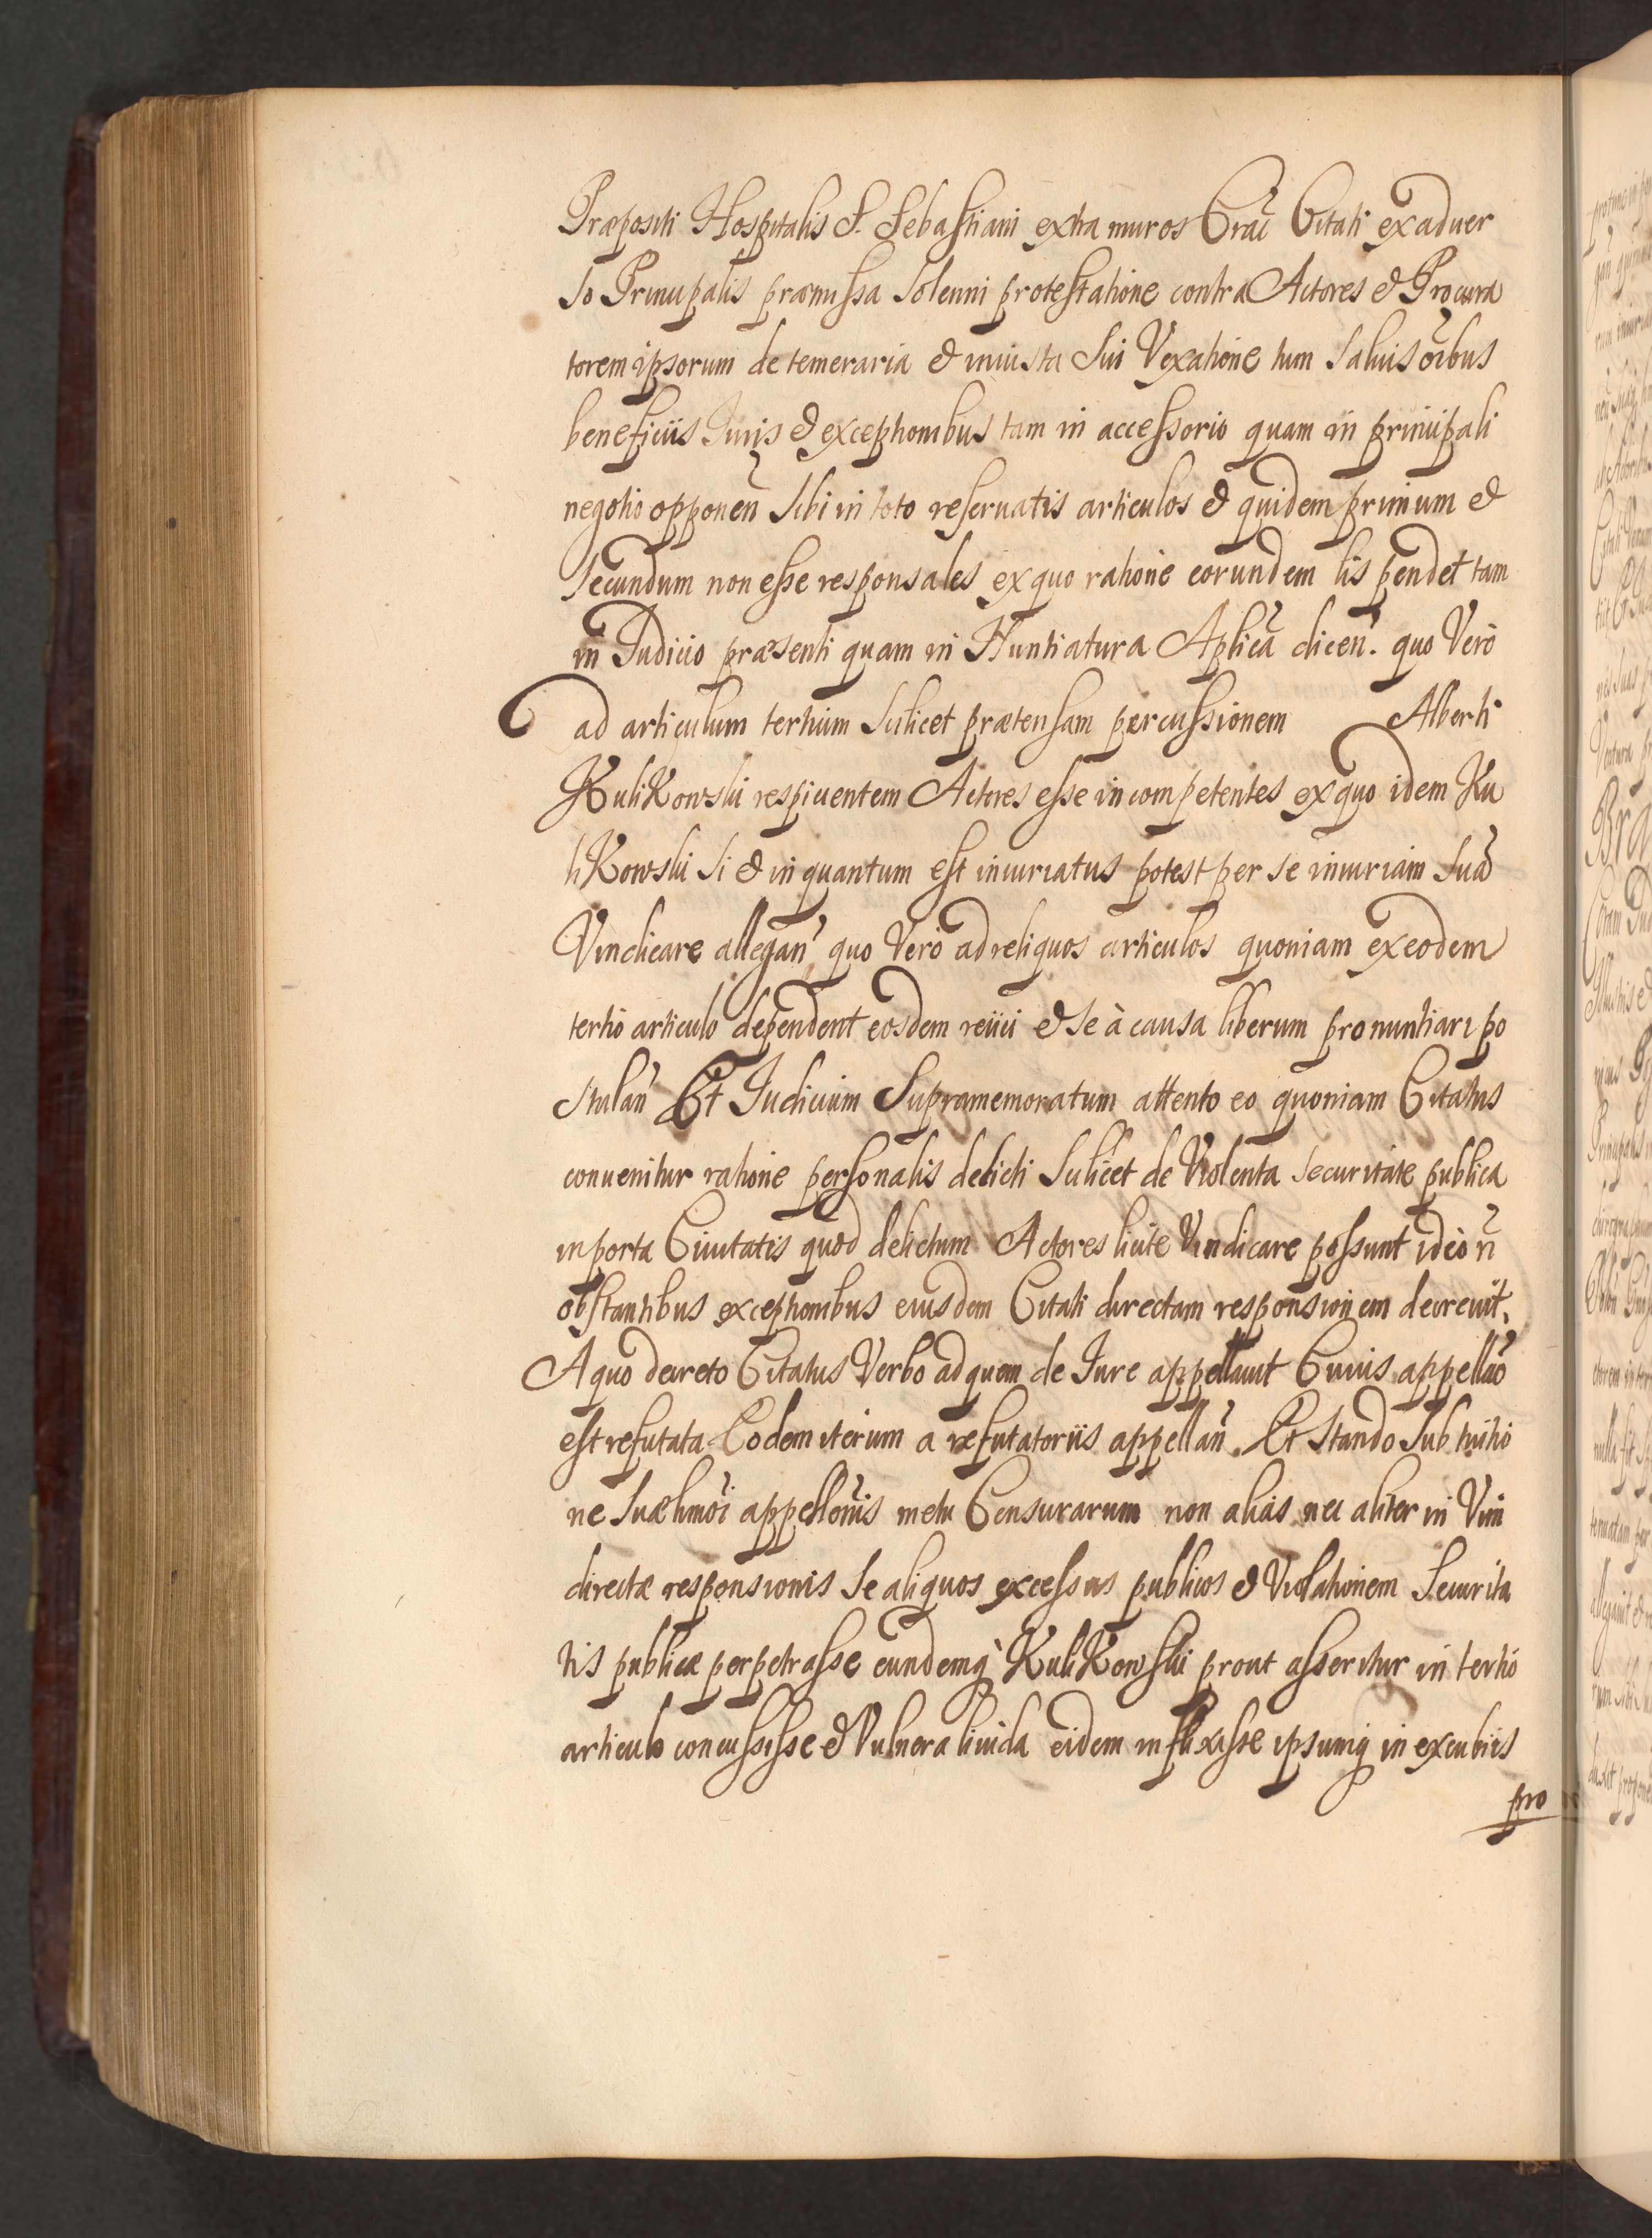 Præpositi Hospitalis S. Sebastiani extra muros Crac̃ Citati ex aduer
so Principalis præmissa solenni protestatione contra Actores et Procura
torem ipsorum de temeraria et iniusta sui Vexatione tum saluis oĩbus
beneficiis Iuris et exceptionibus tam in accessorio quam in principali
negotio opponeñ sibi in toto reseruatis articulos et quidem primum et
secundum non esse responsales ex quo ratione eorundem lis pendet tam
in Iudicio præsenti quam in Nuntiatura Aplica dicen. quo Vero
ad articulum tertium scilicet prætensam percussionem Alberti
Kulikowski respicientem Actores esse incompetentes ex quo idem Ku
likowski si et in quantum est iniuriatus potest per se iniuriam suã
Vindicare allegan̛ quo Vero ad reliquos articulos quoniam ex eodem
tertio articulo dependent eosdem reiici et se à causa liberum pronuntiari po
stulañ Et Iudicium Supramemoratum attento eo quoniam Citatus
conuenitur ratione personalis delicti scilicet de Violenta securitate publica
in porta Ciuitatis quod delictum Actores licite Vindicare possunt ideo ñ
obstantibus exceptionibus eiusdem Citati directam responsionem decreuit.
A quo decreto Citatus Verbo ad quem de Iure appellauit Cuius appellaõ
est refutata Eodem iterum a refutatoriis appellañ. Et stando sub tuitio
ne suæ hmõi appellõnis metu Censurarum non alias nec aliter in Vim
directæ responsionis se aliquos excessus publicos et Violationem Securita
tis publicæ perpetrasse eundemq̀ Kulikowski prout asseritur in tertio
articulo concussisse et Vulnera liuida eidem inflixisse ipsumq in excubiis
pro